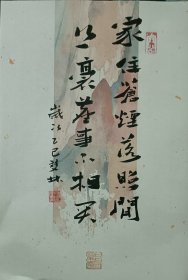 家住蒼煙落照間
丝毫塵事不相关
歲次乙巳